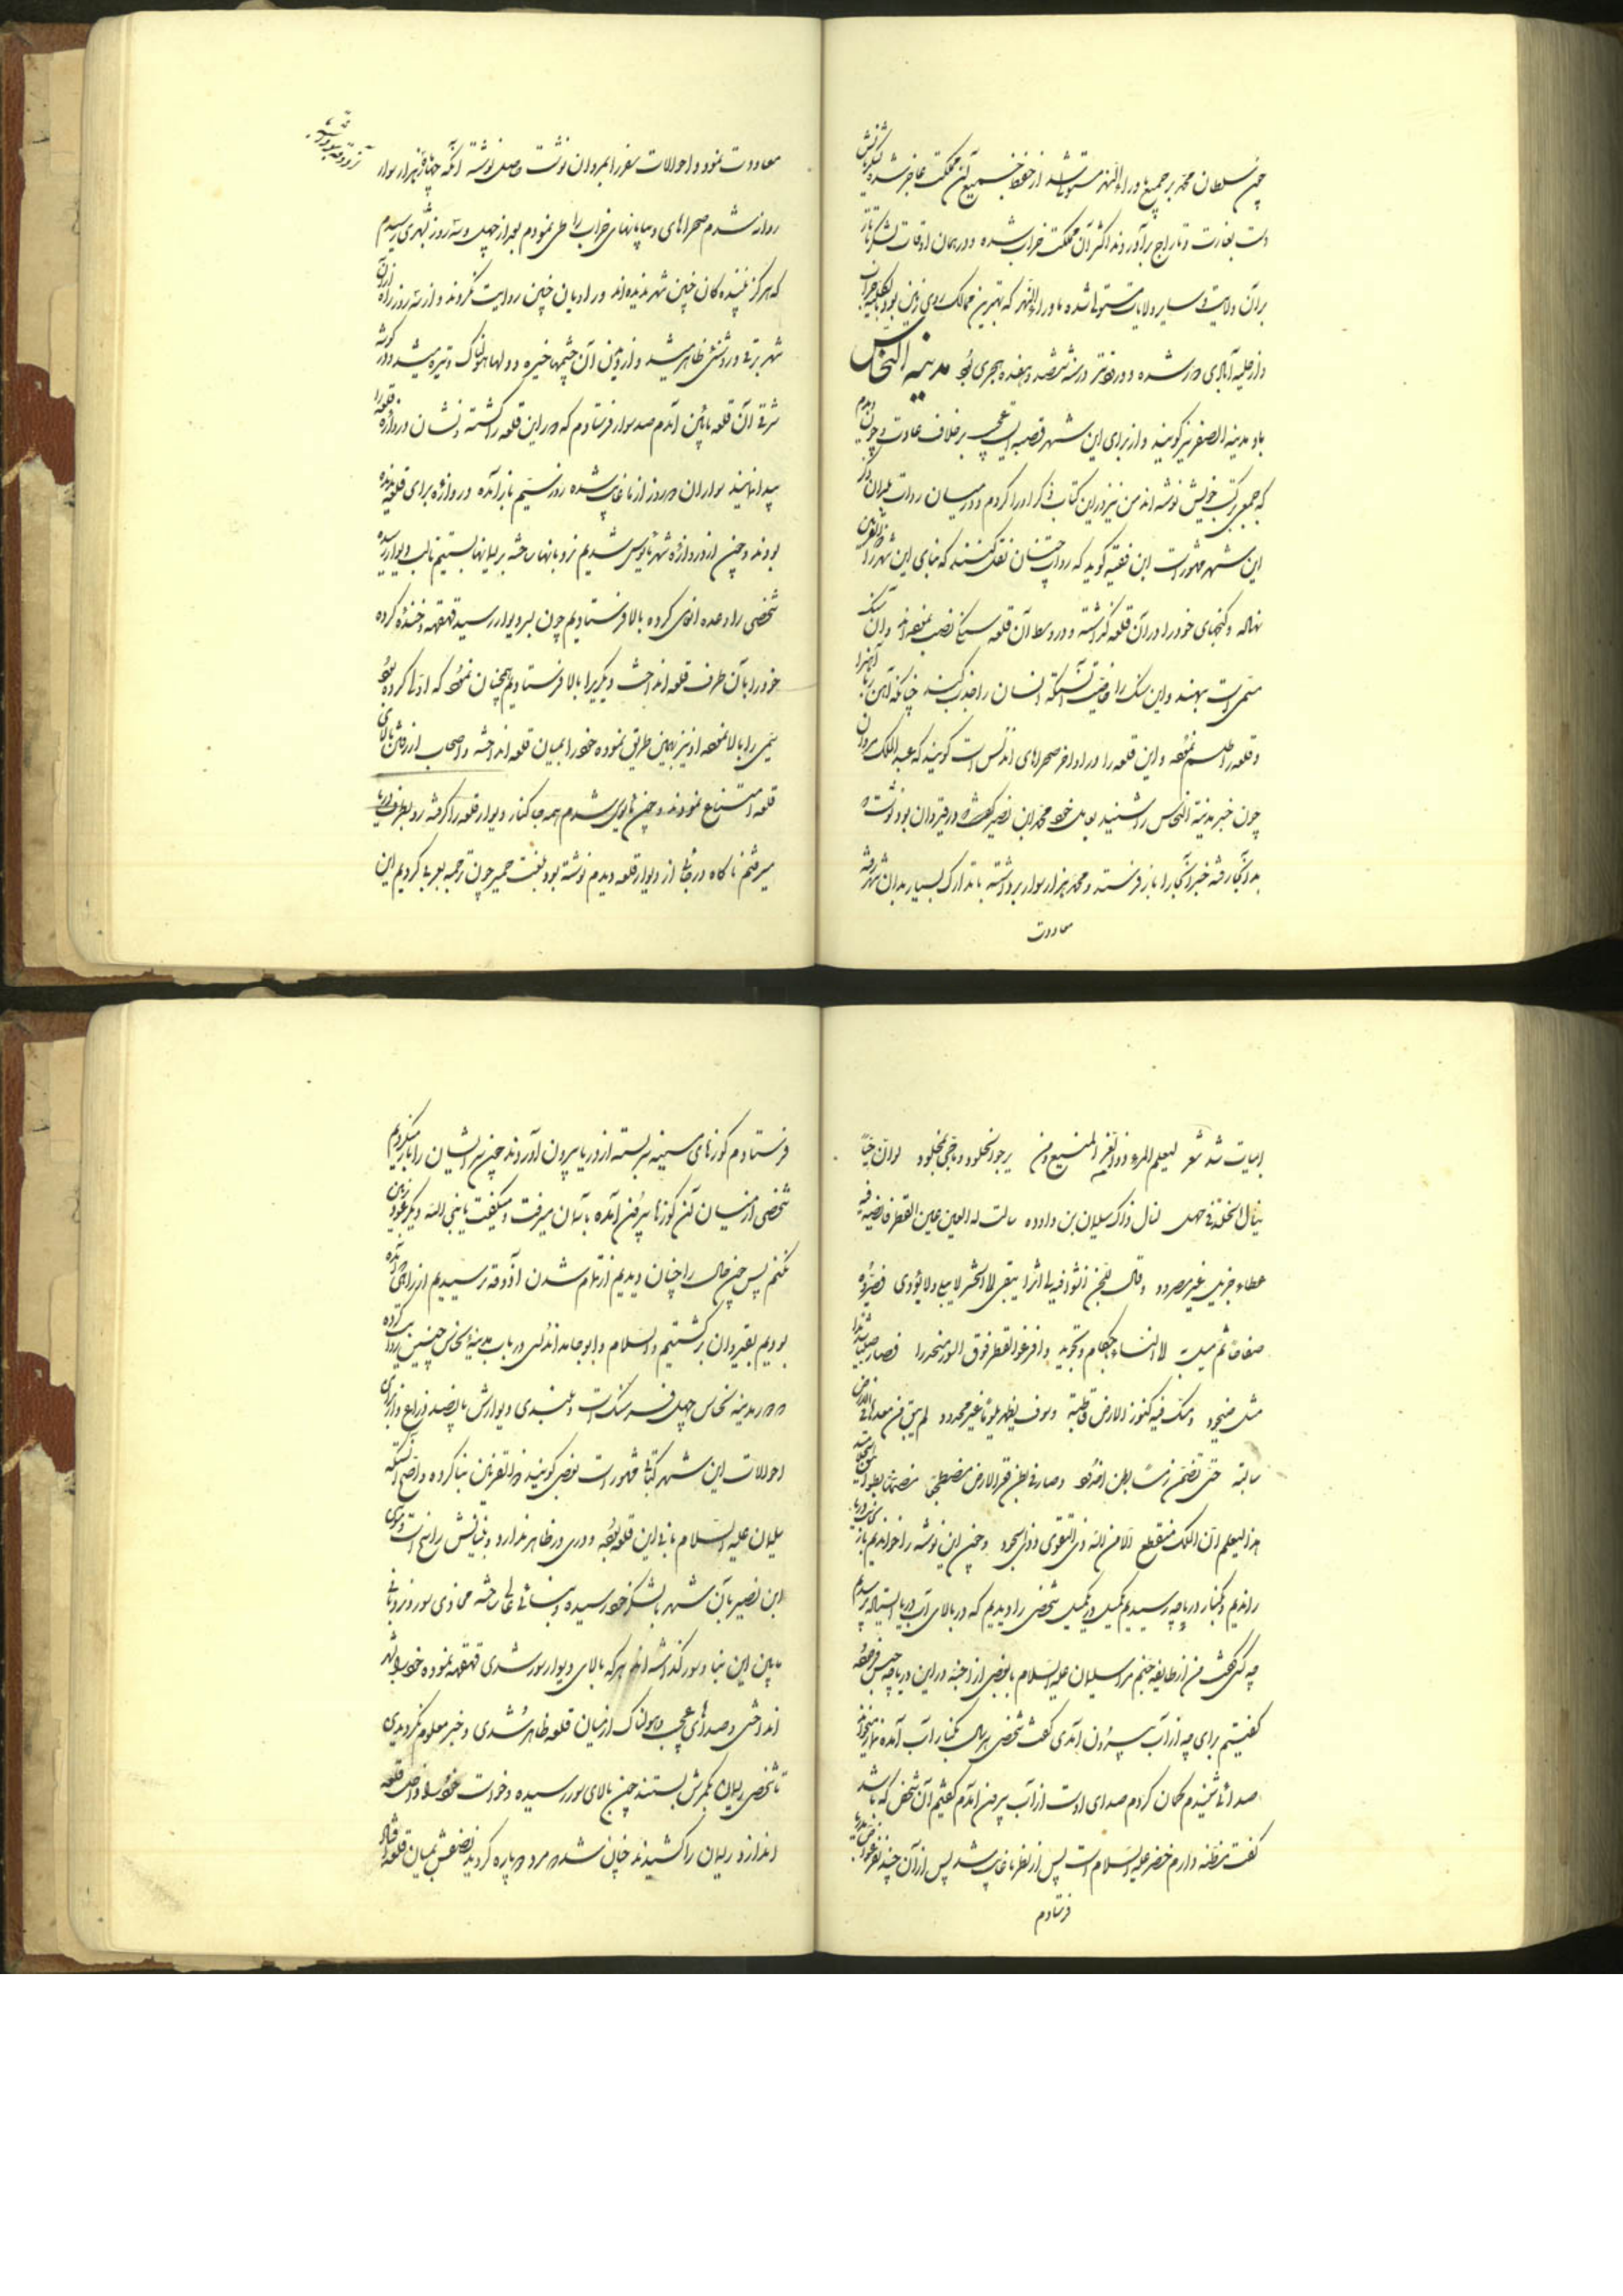 چون سلطان محمد بر جمیع ماوراء النهر مستولی شد از حفظ جمیع آن مملکت عاجز شده لشکریانش
دست بغارت و تاراج برآوردند اکثر آن مملکت خراب شده و در همان اوقات لشکر تاتار
بر آن ولایت و سایر ولایات مستولی شده ماوراء النهر که بهترین ممالک روی زمین بود بالکلیه خراب
و از حلیه آبادی دور شده و در سنه ششصد و هفده هجری بود مدینة النحاس
باو مدینة الصفر نیز گویند و از برای این شهر قصه ایست عجیب بر خلاف عادت و چون دیدم
که جمعی در کتب خویش نوشته‌اند من نیز در این کتاب ذکر او را کردم و در میان روات
این شهر مشهور است ابن فقیه گوید که روات چنان نقل کنند که بنای این شهر را ذوالقرنین
نهاده و گنجهای خود را در آن قلعه گذاشته و در وسط آن قلعه سنگی نصب نموده‌اند و آن سنگ
مسمی است ببهت و این سنگ را خاصیت آنستکه انسان را جذب کند چنانکه آهن ربا آهنرا
و قلعه را طلسم نموده و این قلعه را در اواخر صحراهای اندلس است گویند که عبد الملک مروان
چون خبر مدینة النحاس را شنید بعامل خود محمد ابن نصیر که در قیروان بود نوشت
بدانجا رفته خبر آنجا را باز فرستد و محمد هزار سوار برداشته با تدارک بسیار بدان شهر رفته
معاودت
معاودت نمود و احوالات سفر را بمروان نوشت و اصل نوشته آنکه چهار هزار سوار
روانه شدم صحراهای و بیابانهای خراب را طی نمودم بعد از چهل و سه روز بشهری رسیدم
که هرگز بیننده‌گان چنین شهر ندیده‌اند و راویان چنین روایت نکردند و از سه روز راه از آن
شهر برقی و روشنی ظاهر میشد و از دیدن آن چشمها خیره و دلها هولناک و تیره میشد و در گوشه
شرقی آن قلعه پائین آمدم صد سوار فرستادم که دور این قلعه را گشته و نشان دروازه قلعه را
پیدا نمایند سواران دو روز از ما غایب شده روز سیم باز آمده دروازه برای قلعه ندیده
بودند و چون از دروازه شهر مأیوس شدیم نردبانها ساخته بر یکدیگر بستیم تا لب دیوار رسیده
شخصی را وعده انعام کرده بالا فرستادیم چون بسر دیوار رسید قهقهه و خنده کرده
خود را بآن طرف قلعه انداخت دیگری را بالا فرستادیم همچنان نمود که اولی کرده بود
سیمی را بالا نموده او نیز بهمین طریق نموده خود را بمیان قلعه انداخته و اصحاب از رفتن بالای
قلعه امتناع نمودند و چون مأیوس شدم همه جا کنار دیوار قلعه را گرفته رو بطرف دریا
میرفتم ناگاه در جائی از دیوار قلعه دیدم نوشته بود بلغت حمیر چون ترجمه بعربی کردیم این
ابیات شد شعر لیعلم المرء ذو العز المنیع و من یرجو الخلود و ما حی بمخلود لو ان حیا
ینال الخلد فی مهل لنال ذاک سلیمان بن داود سالت له العین عین القطر فائضة فیه
عطاء جزیل غیر مصرود و قال للجن انشوا فیه لی اثرا یبقی الی الحشر لا یبلی و لا یؤدی فصیروه
صفاحا ثم میل به الی السماء باحکام و تجوید و افرغوا القطر فوق السور منحدرا فصار صلبا شدیدا
مثل صیخود و صک فیه کنوز الارض قاطبة و سوف یظهر یوما غیر محدود لم یبق من بعدها فی الارض
سابقة حتی تضمن رمسا بطن اخدود و صار فی بطن قعر الارض مضطجعا
هذا لیعلم ان الملک منقطع الا من الله ذی التقوی و ذی الجود و چون این نوشته را خواندیم باز
راندیم و بکنار دریاچه رسیدیم یکمیل در یکمیل شخصی را دیدیم که در بالای آب دریا ایستاده پرسیدیم
چه کسی گفت من از طایفه جنم مرا سلیمان علیه السلام با بعضی از اجنه در این دریاچه حبس فرموده
گفتیم برای چه از آب بیرون آمدی گفت شخصی هر سال بکنار آب آمده نماز میخواند
صدائی شنیدم گمان کردم صدای اوست از آب بیرون آمدم گفتیم آن شخص که باشد
گفت مظنه دارم خضر علیه السلام است پس از نظر ما غایب شد پس از آن چند نفر غواص
فرستادم
فرستادم کوزهای مسینه سر بسته از دریا بیرون آوردند چون سر ایشان را باز میکردیم
شخصی از میان آن کوزها بیرون آمده بآسمان میرفت و میگفت یا نبی الله دیگر عود
نکنم پس چون حال را چنان دیدیم از تمام شدن آذوقه ترسیدیم از راهی که آمده
بودیم بقیروان برگشتیم و السلام و ابو حامد اندلسی در باب مدینة نحاس چنین روایت کرده
دور مدینه نحاس چهل فرسنگ است و بلندی دیوارش پانصد ذراع و از برای
احوالات این شهر کتابی مشهور است بعضی گویند ذوالقرنین بنا کرده و اصح آنستکه
سلیمان علیه السلام بانی این قلعه بوده و دری در ظاهر ندارد و بنیانش راسخ است و موسی
ابن نصیر بآن شهر با لشکر خود رسیده و بنائی عالی ساخته محاذی سور و نردبانی
مابین این بنا و سور گذاشته‌اند هر که بالای دیوار سور شدی قهقهه نموده خود را بشهر
انداختی و صداهای عجیب و هولناک از میان قلعه ظاهر شدی و خبر معلوم نگردیدی
تا شخصی ریسمان بکمرش بستند چون بالای سور رسیده و خواست خود را داخل قلعه
اندازد ریسمان را کشیدند چنان شد که مرد دو پاره گردید نصفش بمیان قلعه افتاد